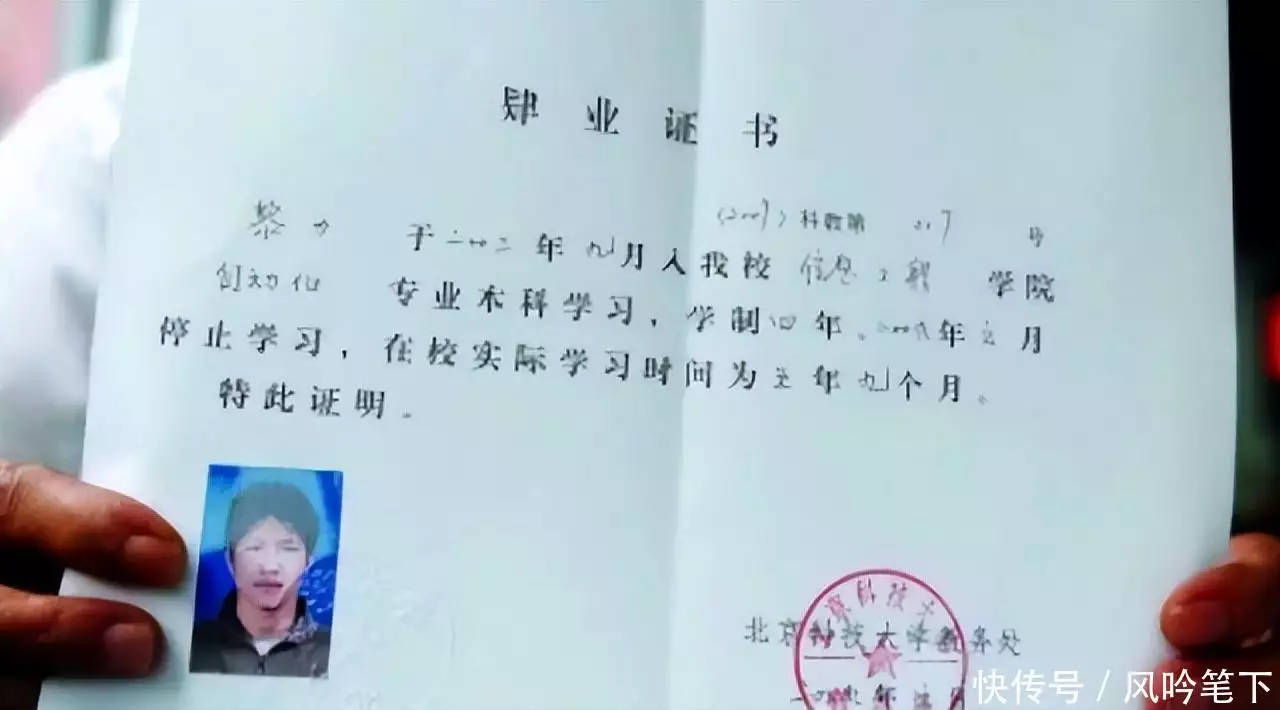 肄业证书
(2009)科教第 号
黎力 于二〇〇三年九月入我校 信息工程 学院
自动化 专业本科学习，学制四年。二〇〇九年 月
停止学习，在校实际学习时间为五年九个月。
特此证明。
北京科技大学教务处
二〇〇九年 月
快传号 / 风吟笔下